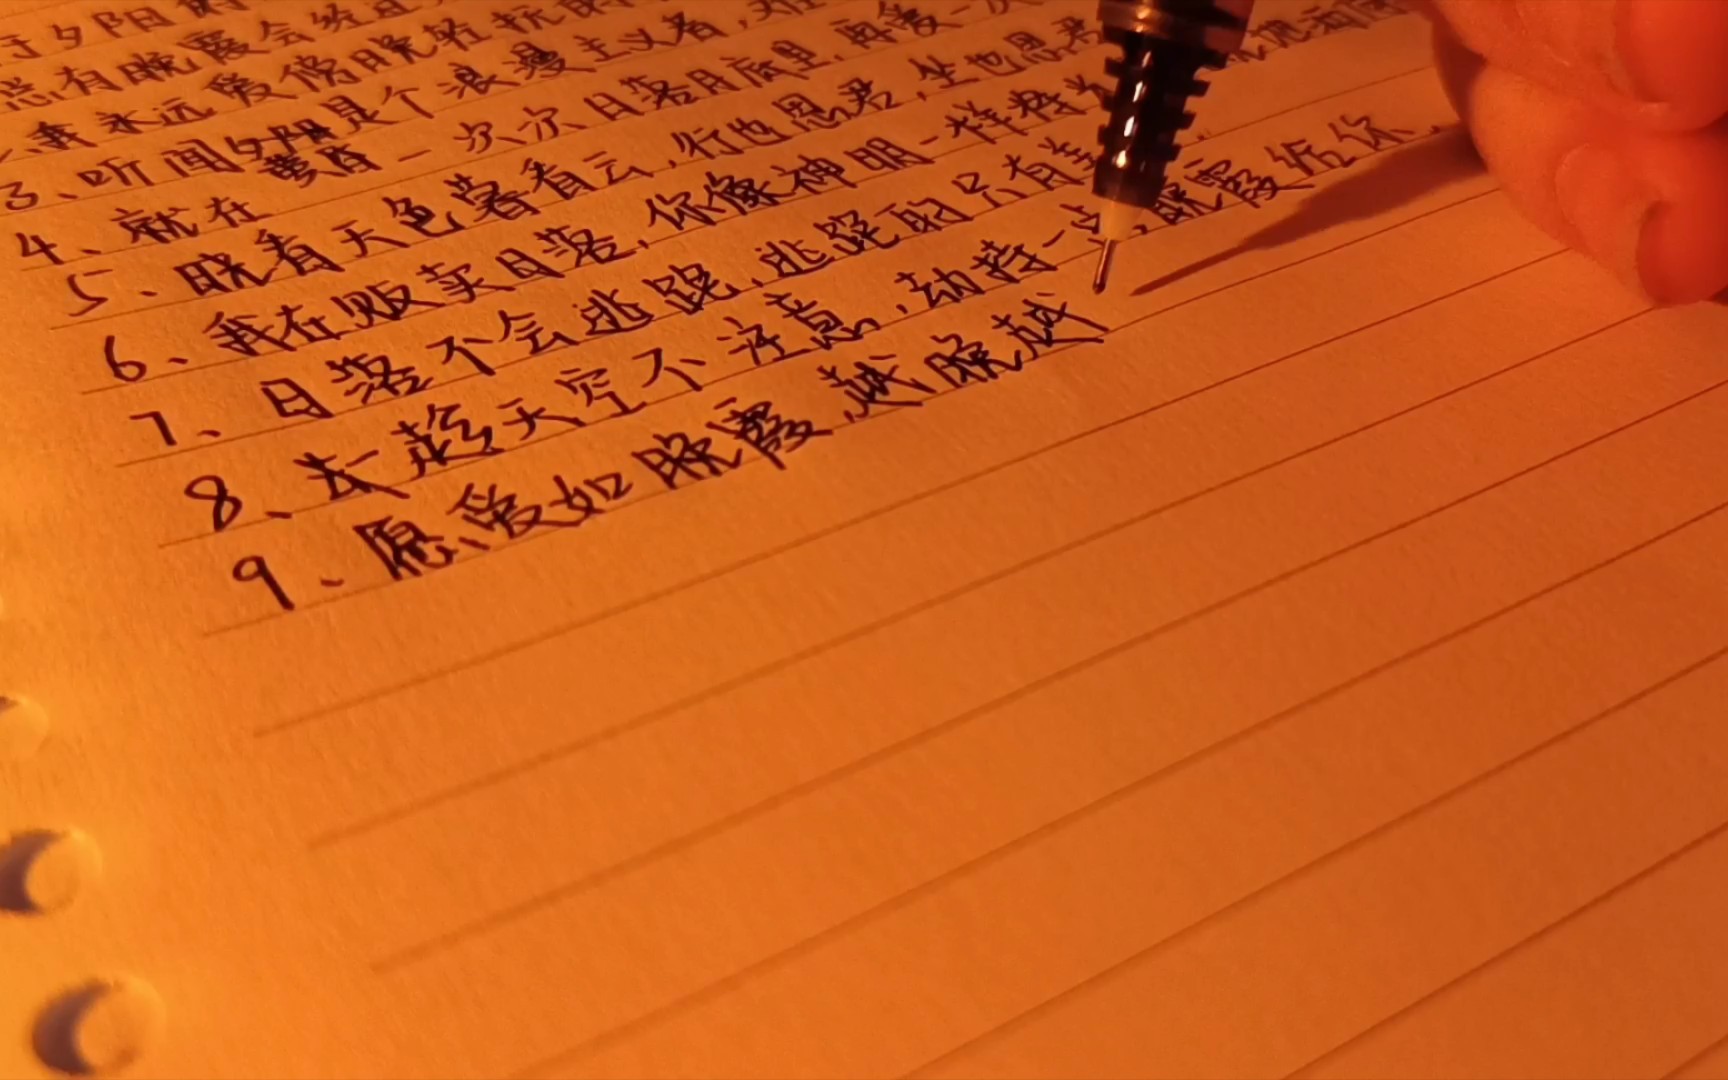 于夕阳的
总有晚霞会经过
我永远爱傍晚轻抚的
3、听闻夕阳是个浪漫主义者,
4、就在黄昏一次次日落月底里,再爱一次
5、晓看天色暮看云,行也思君,坐也思君
6、我在贩卖日落,你像神明一样将光
7、日落不会逃跑,逃跑的只有
8、本趁天空不注意,劫持一点,晚霞给你
9、愿爱如晚霞,越晚越